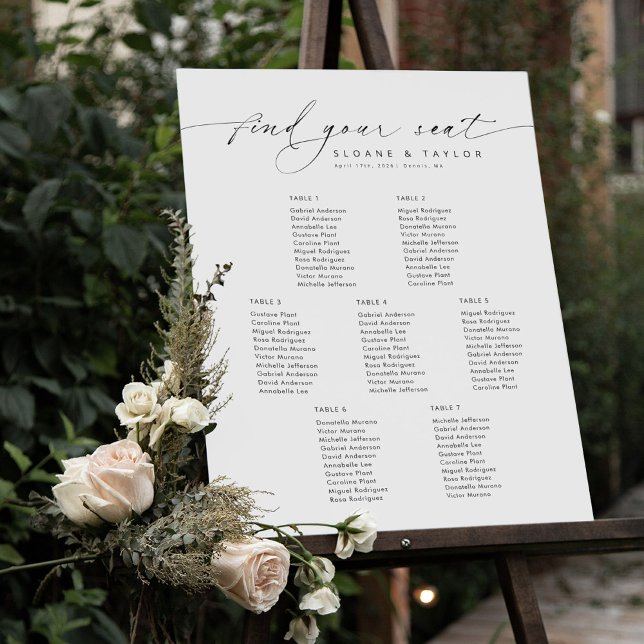 find your seat
SLOANE & TAYLOR
April 17th, 2026| Dennis, MA
TABLE 1
Gabriel Anderson
David Anderson
Annabelle Lee
Gustave Plant
Caroline Plant
Miguel Rodriguez
Rosa Rodriguez
Donatello Murano
Victor Murano
Michelle Jefferson
TABLE 2
Miguel Rodriguez
Rosa Rodriguez
Donatello Murano
Victor Murano
Michelle Jefferson
Gabriel Anderson
David Anderson
Annabelle Lee
Gustave Plant
Caroline Plant
TABLE 3
Gustave Plant
Caroline Plant
Miguel Rodriguez
Rosa Rodriguez
Donatello Murano
Victor Murano
Michelle Jefferson
Gabriel Anderson
David Anderson
Annabelle Lee
TABLE 4
Gabriel Anderson
David Anderson
Annabelle Lee
Gustave Plant
Caroline Plant
Miguel Rodriguez
Rosa Rodriguez
Donatello Murano
Victor Murano
Michelle Jefferson
TABLE 5
Miguel Rodriguez
Rosa Rodriguez
Donatello Murano
Victor Murano
Michelle Jefferson
Gabriel Anderson
David Anderson
Annabelle Lee
Gustave Plant
Caroline Plant
TABLE 6
Donatello Murano
Victor Murano
Michelle Jefferson
Gabriel Anderson
David Anderson
Annabelle Lee
Gustave Plant
Caroline Plant
Miguel Rodriguez
Rosa Rodriguez
TABLE 7
Michelle Jefferson
Gabriel Anderson
David Anderson
Annabelle Lee
Gustave Plant
Caroline Plant
Miguel Rodriguez
Rosa Rodriguez
Donatello Murano
Victor Murano